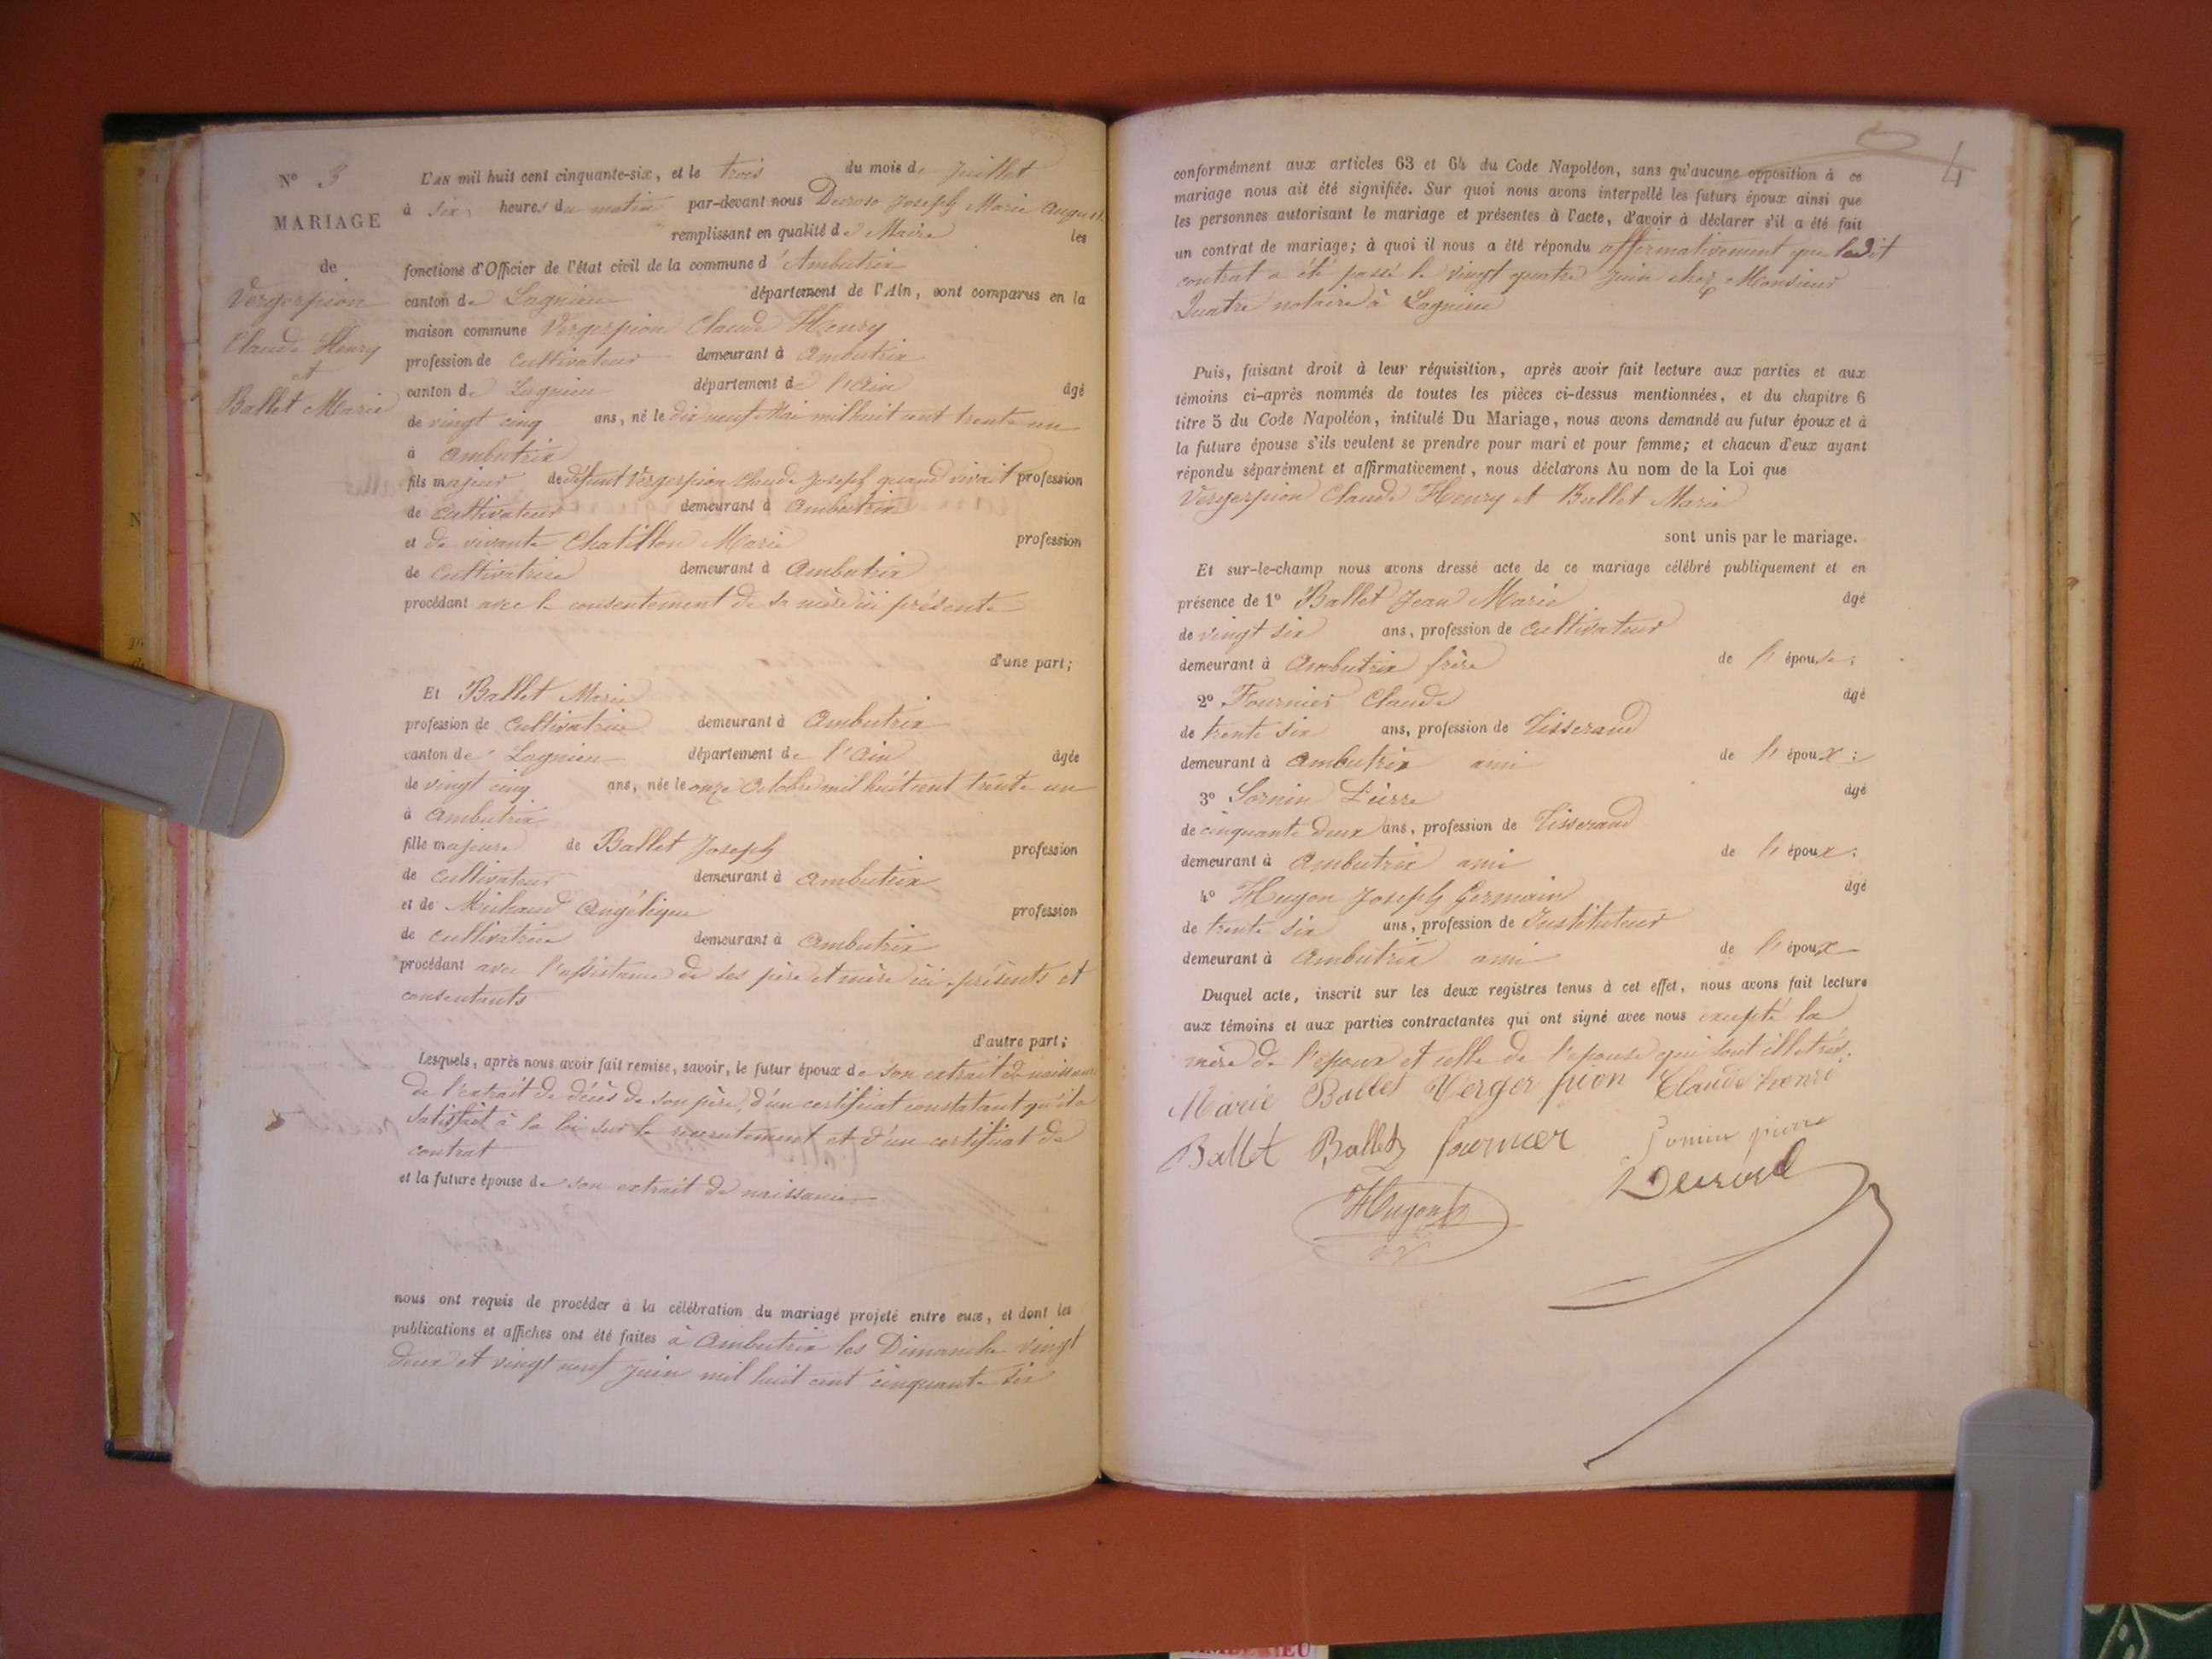 N° 3
MARIAGE
de
Vergerpion
Claude Henry
et
Ballet Marie
L'AN mil huit cent cinquante-six, et le trois du mois de Juillet
à six heures du matin par-devant nous Joseph Marie August
remplissant en qualité de Maire les
fonctions d'Officier de l'état civil de la commune d'Ambutrix
canton de Lagnieu département de l'Ain, sont comparus en la
maison commune Vergerpion Claude Henry
profession de cultivateur demeurant à Ambutrix
canton de Lagnieu département de l'Ain âgé
de vingt cinq ans, né le dix neuf Mai mil huit cent trente un
à Ambutrix
fils majeur de défunt Vergerpion Claude Joseph quand vivait profession
de cultivateur demeurant à Ambutrix
et de vivante Chatillon Marie profession
de cultivatrice demeurant à Ambutrix
procédant avec le consentement de sa mère ici présente
d'une part;
Et Ballet Marie
profession de Cultivatrice demeurant à Ambutrix
canton de Lagnieu département de l'Ain âgée
de vingt cinq ans, née le onze Octobre mil huit cent trente un
à Ambutrix
fille majeure de Ballet Joseph profession
de cultivateur demeurant à Ambutrix
et de Michaud Angélique profession
de cultivatrice demeurant à Ambutrix
procédant avec l'assistance de ses père et mère ici présents et
consentants
d'autre part;
Lesquels, après nous avoir fait remise, savoir, le futur époux de son extrait de naissance
de l'extrait de décès de son père, d'un certificat constatant qu'il a
satisfait à la loi sur le recrutement et d'un certificat de
contrat
et la future épouse de son extrait de naissance
nous ont requis de procéder à la célébration du mariage projeté entre eux, et dont les
publications et affiches ont été faites à Ambutrix les Dimanche vingt
deux et vingt neuf Juin mil huit cent cinquante six
4
conformément aux articles 63 et 64 du Code Napoléon, sans qu'aucune opposition à ce
mariage nous ait été signifiée. Sur quoi nous avons interpellé les futurs époux ainsi que
les personnes autorisant le mariage et présentes à l'acte, d'avoir à déclarer s'il a été fait
un contrat de mariage; à quoi il nous a été répondu affirmativement que ledit
contrat a été passé le vingt quatre Juin chez Monsieur
Quatre notaire à Lagnieu
Puis, faisant droit à leur réquisition, après avoir fait lecture aux parties et aux
témoins ci-après nommés de toutes les pièces ci-dessus mentionnées, et du chapitre 6
titre 5 du Code Napoléon, intitulé Du Mariage, nous avons demandé au futur époux et à
la future épouse s'ils veulent se prendre pour mari et pour femme; et chacun d'eux ayant
répondu séparément et affirmativement, nous déclarons Au nom de la Loi que
Vergerpion Claude Henry et Ballet Marie
sont unis par le mariage.
Et sur-le-champ nous avons dressé acte de ce mariage célébré publiquement et en
présence de 1° Ballet Jean Marie âgé
de vingt six ans, profession de cultivateur
demeurant à Ambutrix frère de l'épouse;
2° Fournier Claude âgé
de trente six ans, profession de Tisserand
demeurant à Ambutrix ami de l'époux;
3° Sornin Pierre âgé
de cinquante deux ans, profession de Tisserand
demeurant à Ambutrix ami de l'époux;
4° Hugon Joseph Germain âgé
de trente six ans, profession de Instituteur
demeurant à Ambutrix ami de l'époux
Duquel acte, inscrit sur les deux registres tenus à cet effet, nous avons fait lecture
aux témoins et aux parties contractantes qui ont signé avec nous excepté la
mère de l'époux et celle de l'épouse qui sont illetrés.
Marie Ballet Verger pion Claude henri
Ballet Ballet fournier Sornin pierre
Hugon